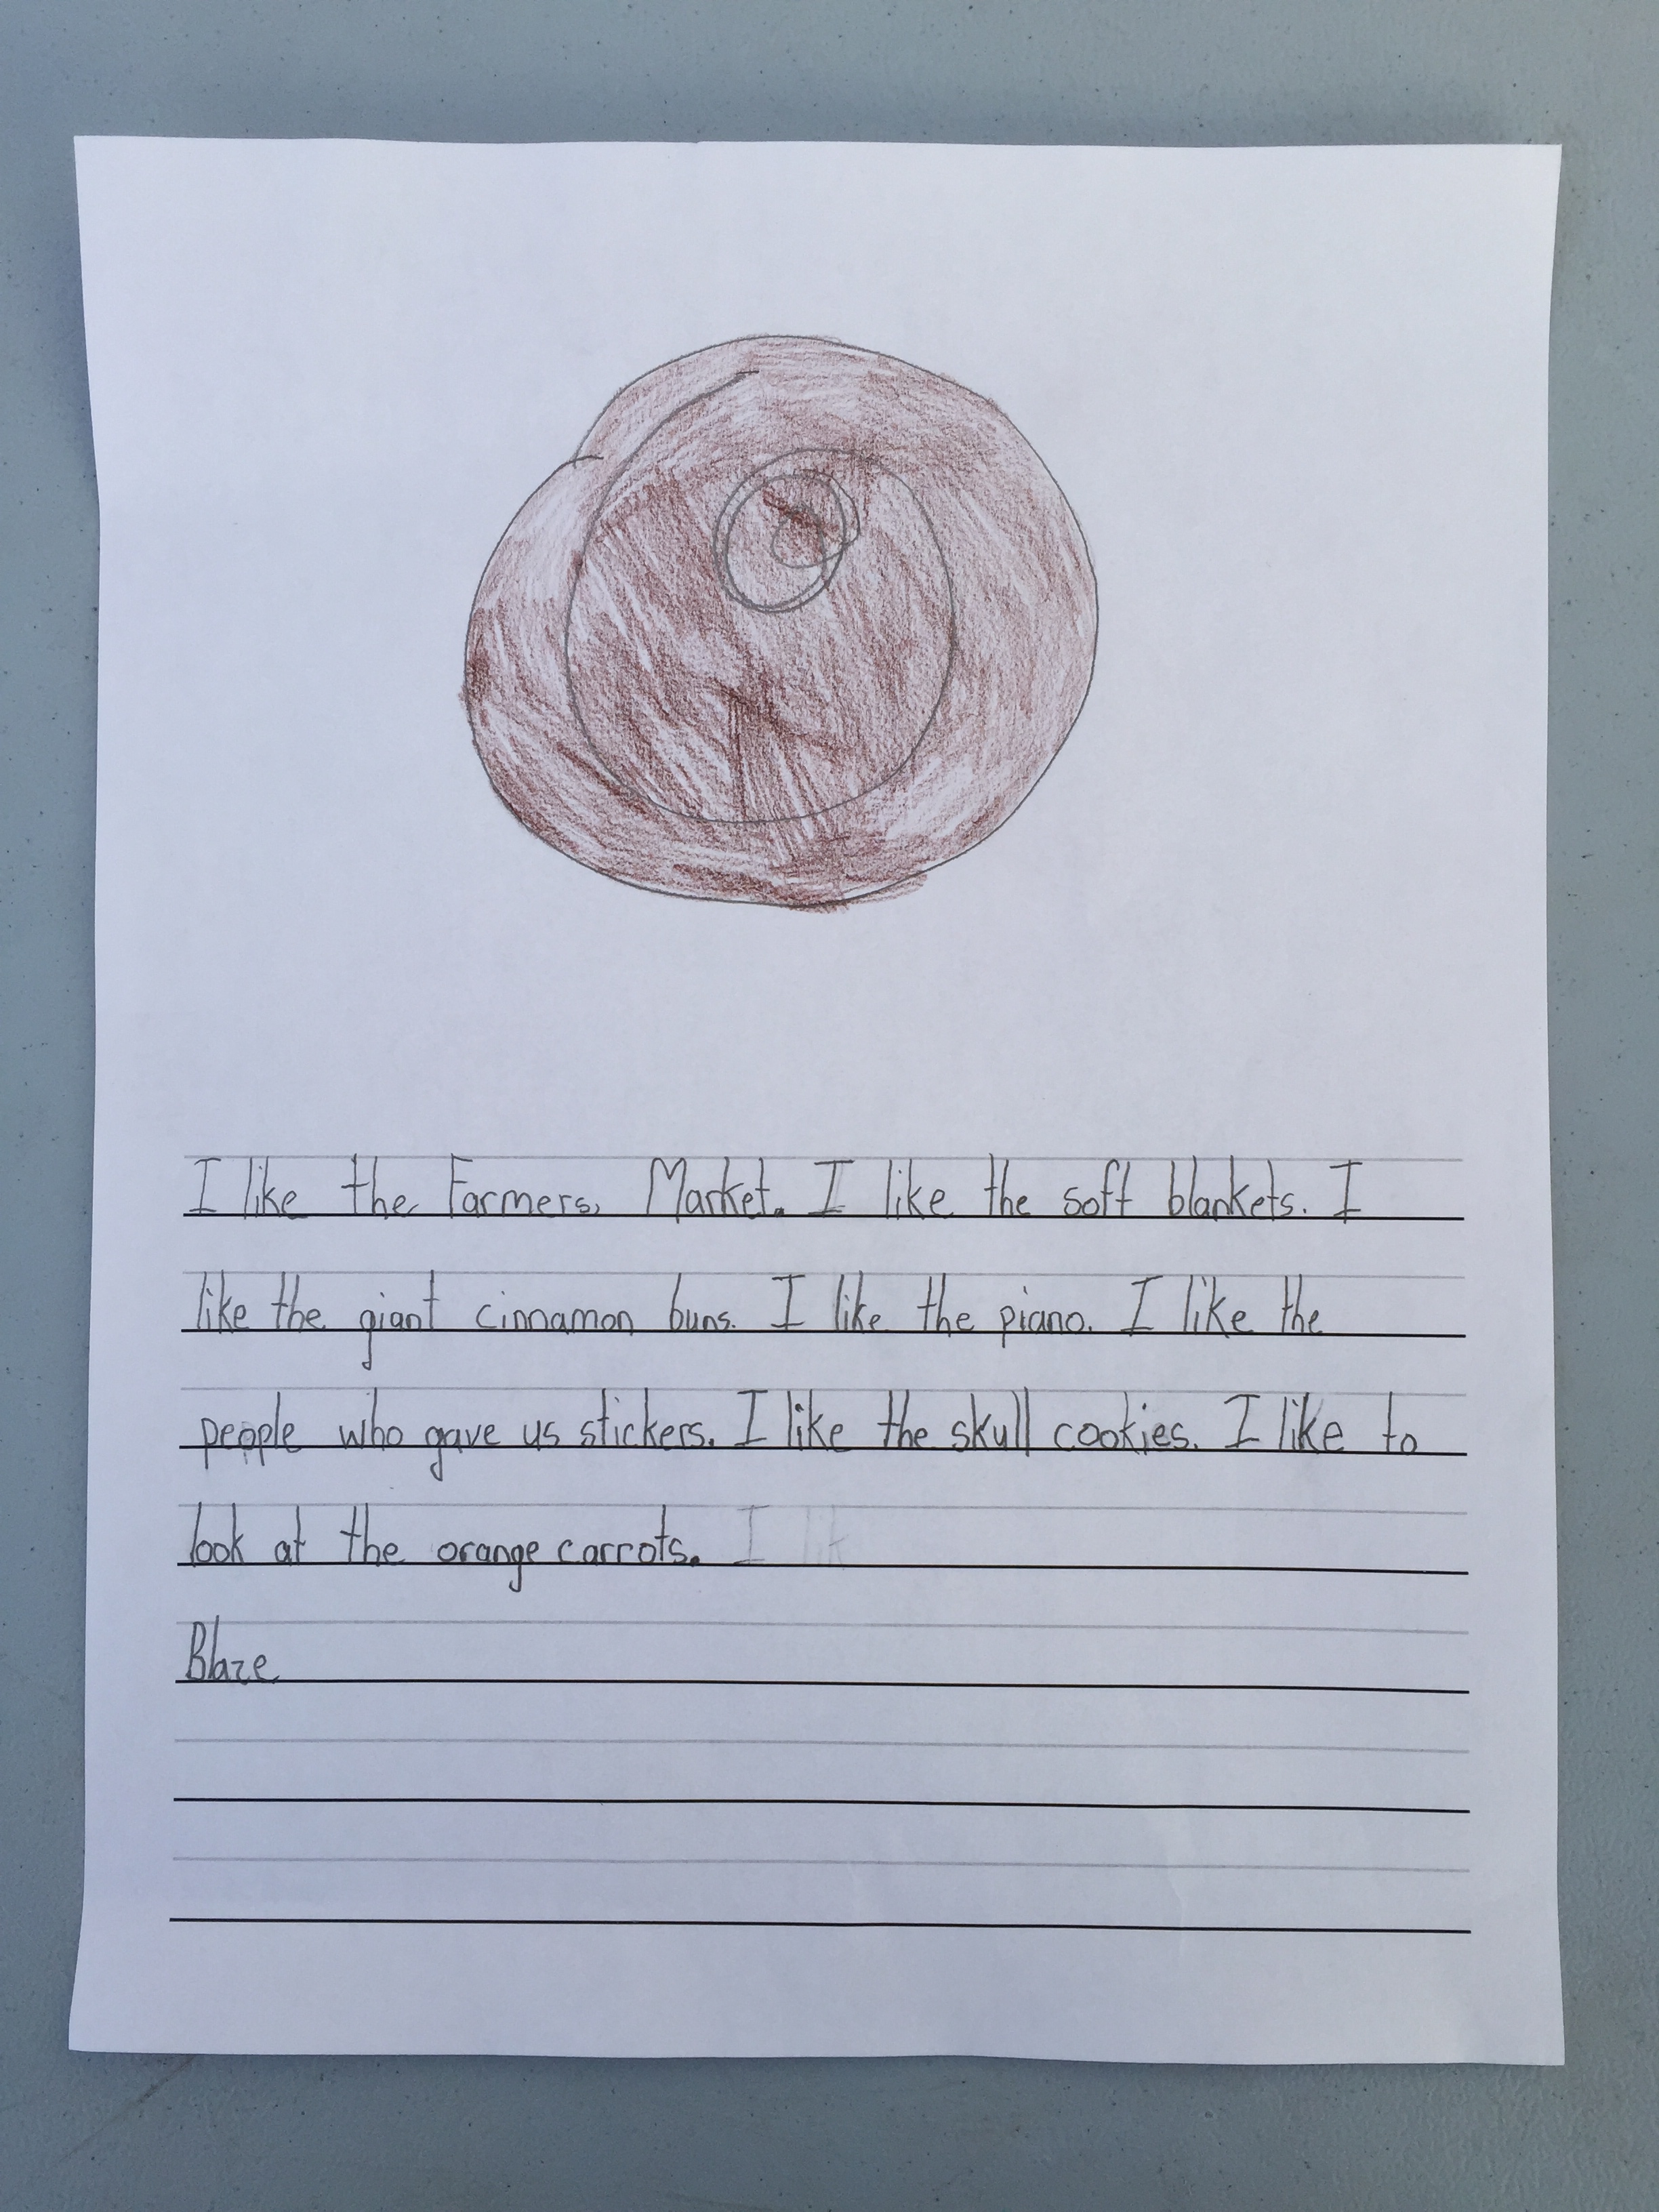 I like the Farmers, Market. I like the soft blankets. I
like the giant cinnamon buns. I like the piano. I like the
people who gave us stickers. I like the skull cookies. I like to
look at the orange carrots. I lik
Blaze